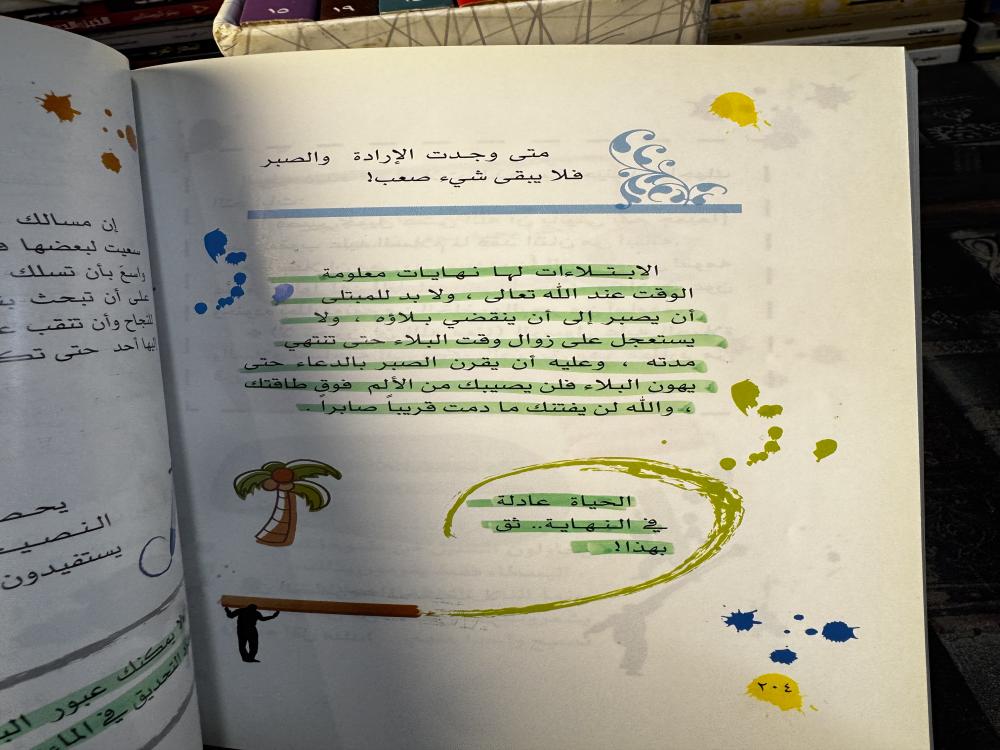 متى وجدت الإرادة والصبر
فلا يبقى شيء صعب!
الابتلاءات لها نهايات معلومة
الوقت عند الله تعالى ، ولا بد للمبتلى
أن يصبر إلى أن ينقضي بلاؤه ، ولا
يستعجل على زوال وقت البلاء حتى تنتهي
مدته ، وعليه أن يقرن الصبر بالدعاء حتى
يهون البلاء فلن يصيبك من الألم فوق طاقتك
، والله لن يفتنك ما دمت قريباً صابراً .
الحياة عادلة
في النهاية.. ثق
بهذا!
٢٠٤
إن مسالك
سعيت لبعضها
بأن تسلك
على أن تبحث
للنجاح وأن تنقب
إليها أحد حتى
يستفيدون
يمكنك عبور
التحديق في
١٥
١٩